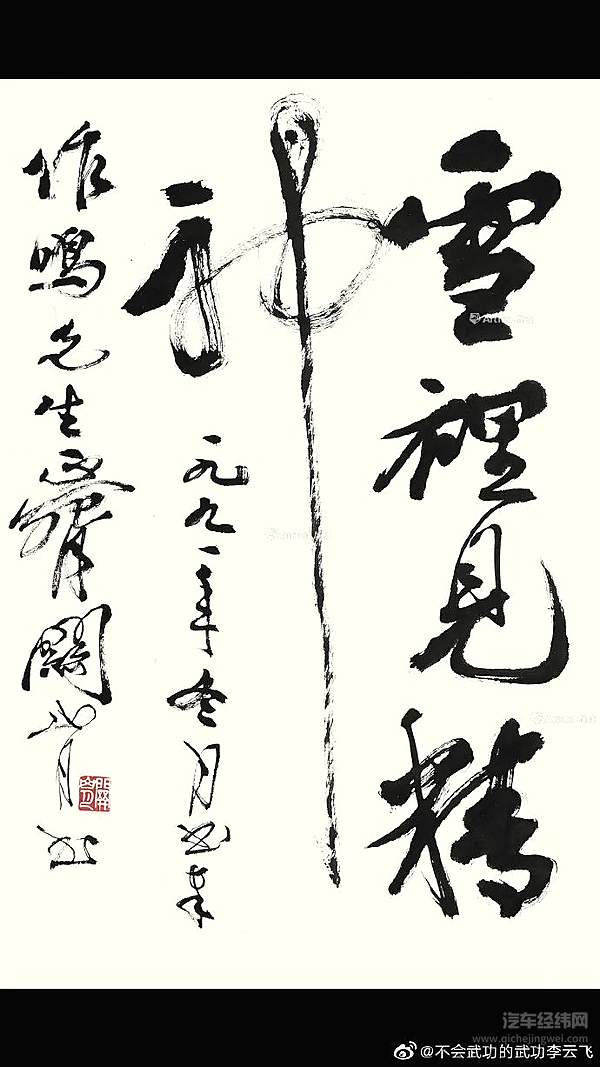 雪裡見精
神
一九九一年冬月书奉
作鳴先生
關山月
汽车经纬网
www.qichejingwei.com
@不会武功的武功李云飞